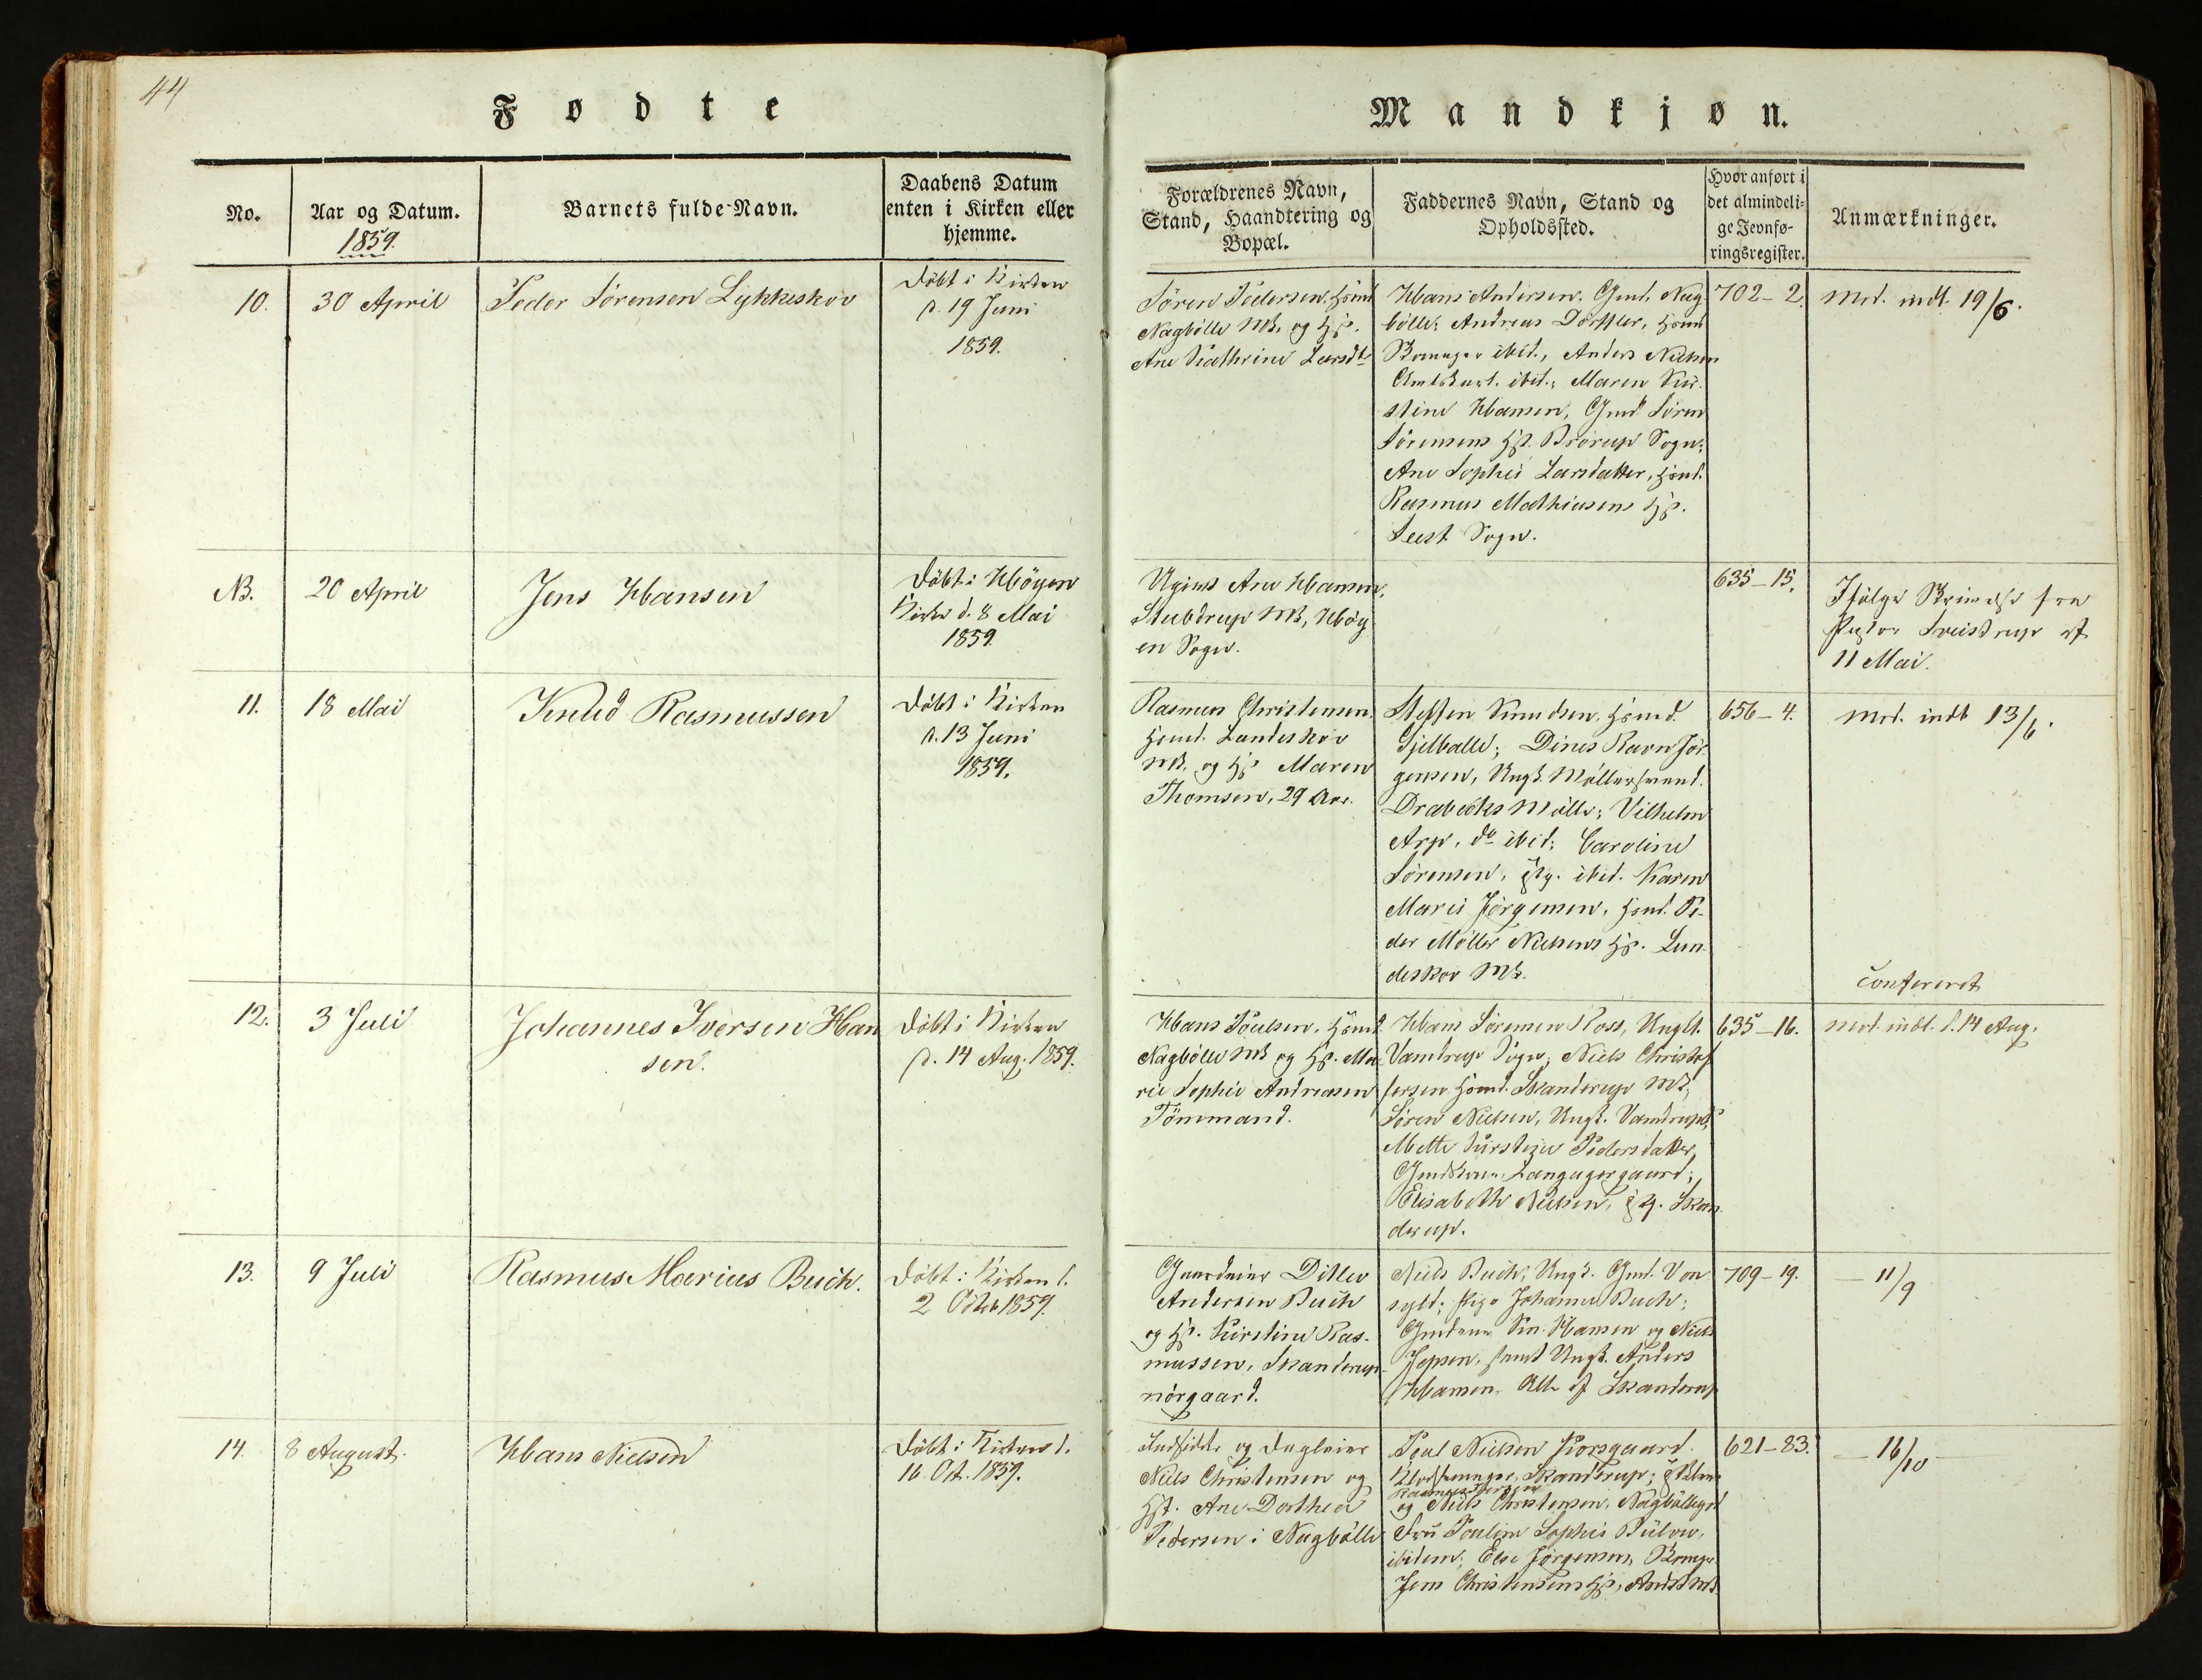 44
Fødte
Mandkjøn.
No.
Aar og Datum.
1859.
Barnets fulde Navn.
Daabens Datum
enten i Kirken eller
hjemme.
Forældrenes Navn,
Stand, Haandtering og
Bopæl.
Faddernes Navn, Stand og
Opholdssted.
Hvor anført i
det almindeli-
ge Jevnfø-
ringsregister.
Anmærkninger.
10.
30 April
Peder Sørensen Lykkeskov
Døbt i Kirken
d. 19 Juni
1859.
Søren Pedersen, Hsmd
Nagbølle Mk. og Hst.
Ane Kathrine Larsdtr
Hans Andersen, Gmd. Nag-
bølle; Andreas
ibid., Anders Nielsen
ibid.; Maren Kir-
stine Hansen, Gmd. Søren
Sørensens Hst. Brørup Sogn;
Ane Sophie Larsdatter, Hsmd.
Rasmus Mathiasens Hst.
Seest Sogn.
702-2.
Mod. indl. 19/6.
NB.
20 April
Jens Hansen
Døbt i Høyen
Kirke d. 8 Mai
1859.
Ugivt Ane Hansen,
Stubdrup Mk, Høy-
en Sogn.
635-15.
Ifølge fra
Pastor Sveistrup af
11 Mai.
11.
18 Mai
Knud Rasmussen
Døbt i Kirken
d. 13 Juni
1859.
Rasmus Christensen,
Hsmd. Lundeskov
Mk. og Hst Maren
Thomsen, 29 Aar.
Steffen Knudsen, Hsmd.
Gjelballe; Dines Ravn Jør-
gensen, Ungk. Møllersvend.
Drabæks Mølle; Vilhelm
Arp, do ibid; Caroline
Sørensen, ibid. Karen
Marie Jørgensen, Hsmd. Pe-
der Møller Nielsens Hst. Lun-
deskov Mk.
656-4.
Mod. indl 13/6.
Confereret
12.
3 Juli
Johannes Iversen Han
sen.
Døbt i Kirken
d. 14 Aug. 1859.
Hans Poulsen, Hsmd.
Nagbølle Mk og Hst. Ma-
rie Sophie Andreasen
Tømmand.
Hans Sørensen Ross, Ungk.
Vamdrup Sogn; Niels Christof-
fersen Hsmd. Skanderup Mk;
Søren Nielsen, Ungk. Vamdrup S;
Mette Kirstine Pedersdatter,
Langagergaard;
Elisabeth Nielsen, Skan-
derup.
635-16.
Mod. indl. d. 14 Aug.
13.
9 Juli
Rasmus Marius Buch.
Døbt i Kirken d.
2 Octob 1859.
Gaardeier Ditlev
Andersen Buch
og Hst. Kirstine Ras-
mussen, Skanderup-
nørgaard.
Niels Buch, Ungk. Gmd. Von-
syld; Pige Johanne Buch;
Gmdene Kn. Hansen og Niels
Jepsen, samt Ungk. Anders
Hansen. Alle af Skanderup
709-19.
- 11/9
14.
8 August.
Hans Nielsen
Døbt i Kirken d.
16 Oct. 1859.
Indsidder og Dagleier
Niels Christensen og
Hst. Ane Dorthea
Pedersen i Nagbølle
Poul Nielsen Korsgaard.
Skanderup;
og Niels Christensen, Nagbøllegd
Fru Pauline Sophie Bülow,
ibidem; Else Jørgensen,
Jens Christensens Hst, Andst Mk
621-83.
- 16/10